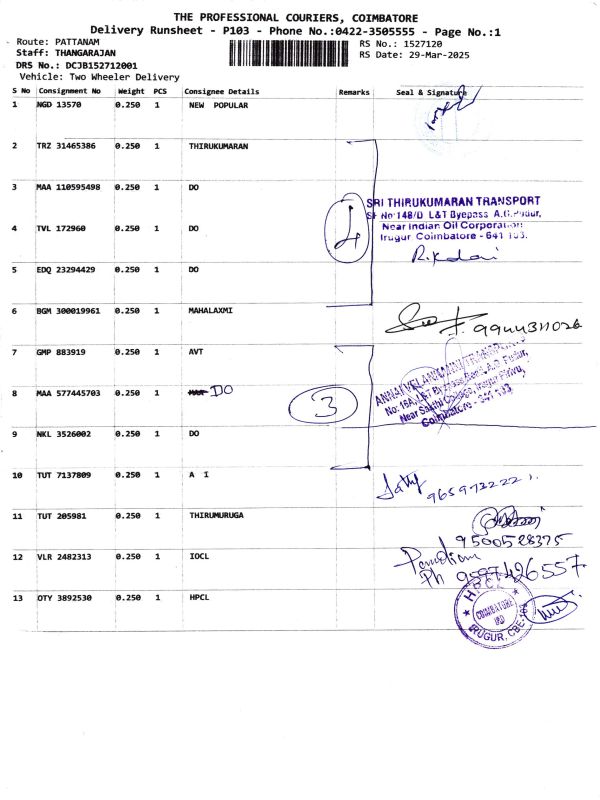 THE PROFESSIONAL COURIERS, COIMBATORE
Delivery Runsheet - P103 - Phone No.:0422-3505555 - Page No.:1
Route: PATTANAM RS No.: 1527120
Staff: THANGARAJAN RS Date: 29-Mar-2025
DRS No.: DCJB152712001
Vehicle: Two Wheeler Delivery
S No Consignment No Weight PCS Consignee Details Remarks Seal & Signature
1 NGD 13570 0.250 1 NEW POPULAR
2 TRZ 31465386 0.250 1 THIRUKUMARAN
3 MAA 110595498 0.250 1 DO
SRI THIRUKUMARAN TRANSPORT
SF No:148/D L&T Byepass A.G.Pudur,
4 TVL 172960 0.250 1 DO 4
Near Indian Oil Corporation
Irugur Coimbatore - 641 103.
5 EDQ 23294429 0.250 1 DO
6 BGM 300019961 0.250 1 MAHALAXMI
9944311026
7 GMP 883919 0.250 1 AVT
ANNAI VELANKANNI TRANSPORT
8 MAA 577445703 0.250 1 DO 3
Coimbatore - 641 103
9 NKL 3526002 0.250 1 DO
10 TUT 7137809 0.250 1 A I
9659732221
11 TUT 205981 0.250 1 THIRUMURUGA
9500528375
12 VLR 2482313 0.250 1 IOCL
Ph 9597426557
13 OTY 3892530 0.250 1 HPCL
HPCL
COIMBATORE
IRD
IRUGUR, CBE-103